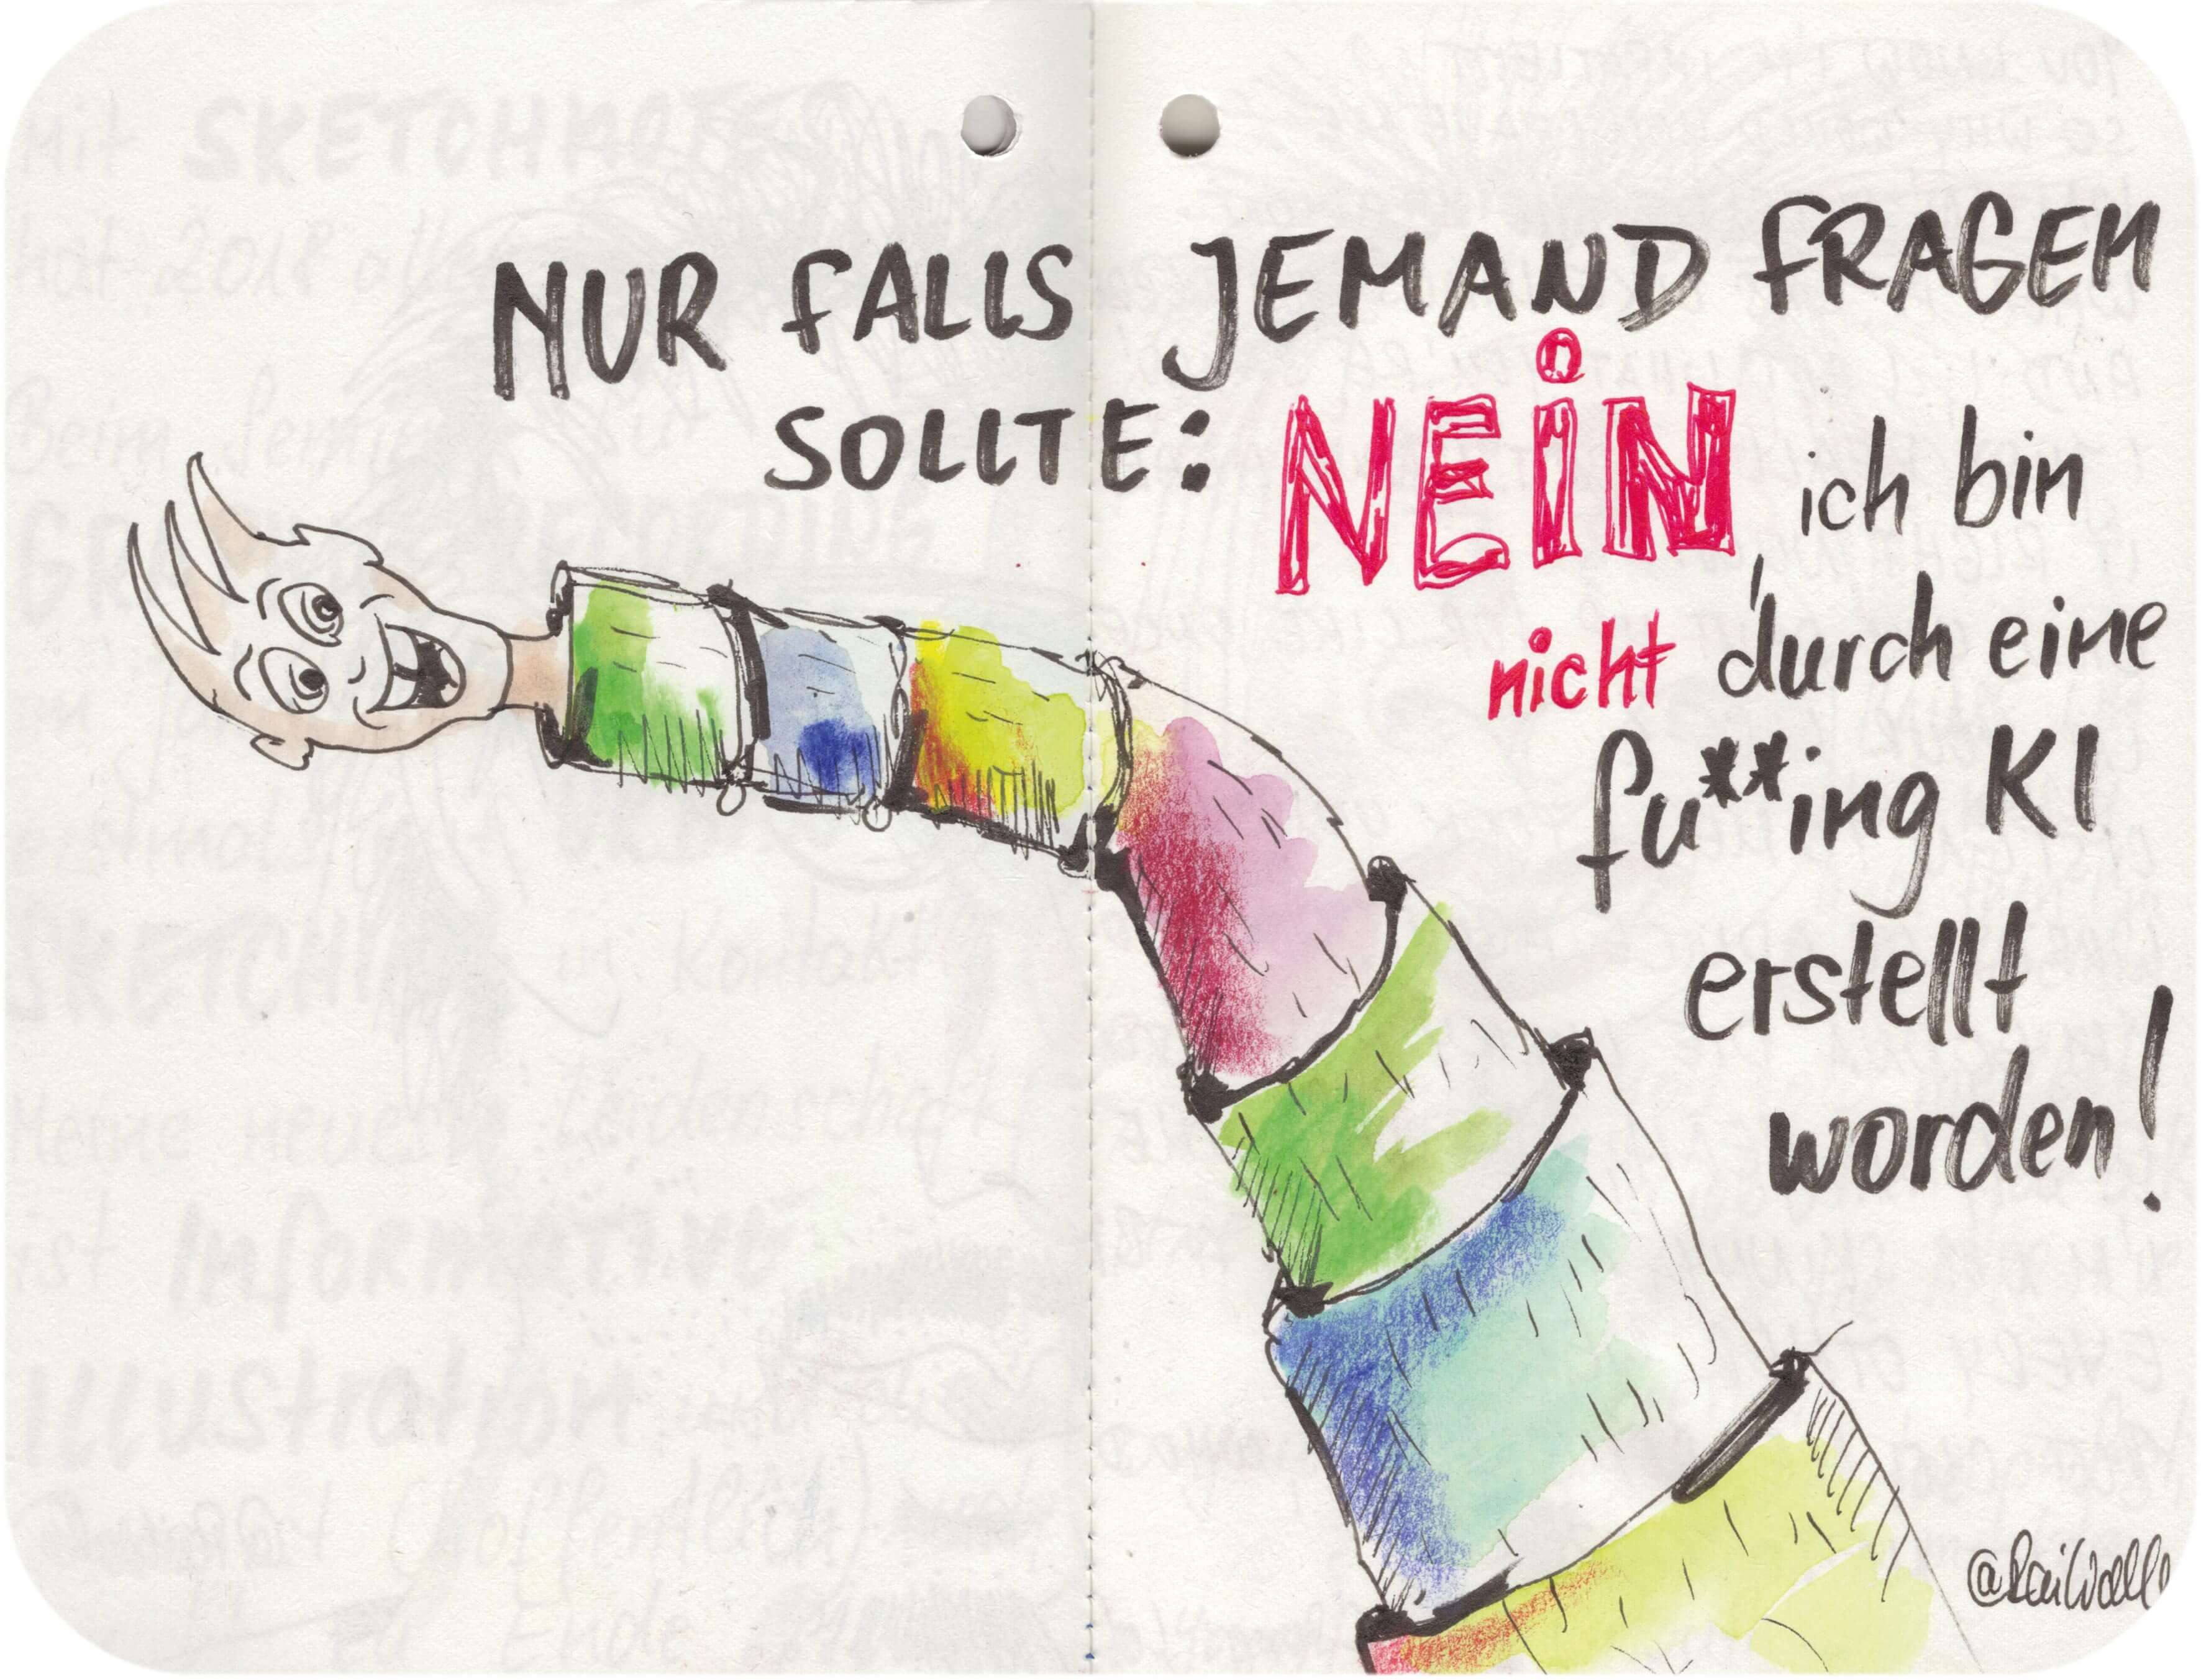 NUR FALLS JEMAND FRAGEN
SOLLTE: NEIN, ich bin
nicht durch eine
fu**ing KI
erstellt
worden!